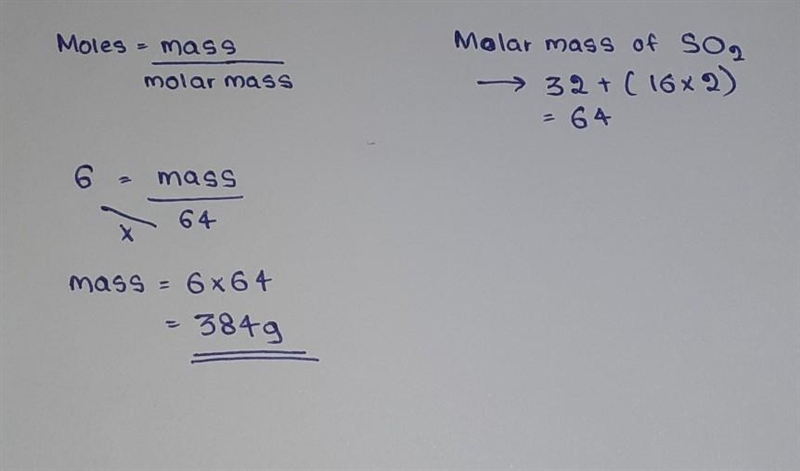 Moles = mass
molar mass
Molar mass of SO2
→ 32 + (16 x 2)
= 64
6 = mass
64
x
mass = 6 x 64
= 384g